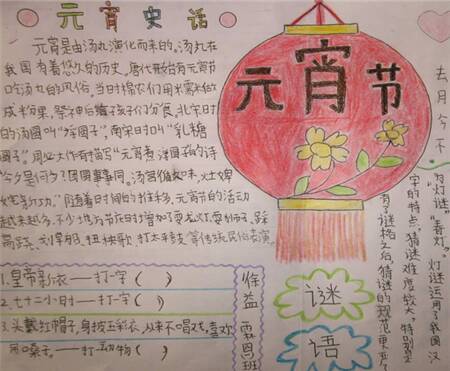 元宵史话
元宵是由汤丸演化而来的。汤丸在
我国有着悠久的历史，唐代就有元宵节
吃汤丸的风俗。当时棉农们用米
成半
的汤圆叫"浮圆子"，南宋时叫"乳糖
圆子"。周必大作有描写"元宵煮浮圆子的诗
今夕是何夕？团圆事事同。汤官
随着时间的推移，元宵节的活动
越来越多，不少地方节庆时增加了耍龙灯、耍狮子、踩
高跷、划旱船、扭秧歌、打太平鼓等传统民俗表演。
元宵节
去月今不
为"灯谜""春灯"。灯谜运用了我国汉
字的特点，猜谜难度较大，特别是
有了谜格之后，猜谜的规范更严了
1.皇帝新衣——打一字（ ）
2.七十二小时——打一字（ ）
3.头戴红帽子，身披五彩衣，从来不唱戏，喜欢
吊嗓子。——打一动物（ ）
谜
语